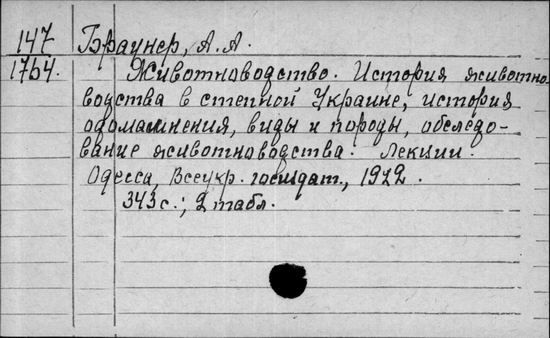 147 Браунер, А. А.
1764. Животноводство. История животно
водства в степной Украине, история
одомашнения, виды и породы, обследо-
вание животноводства. Лекции.
Одесса, Всеукр. госиздат., 1922.
343 с.; 2 табл.